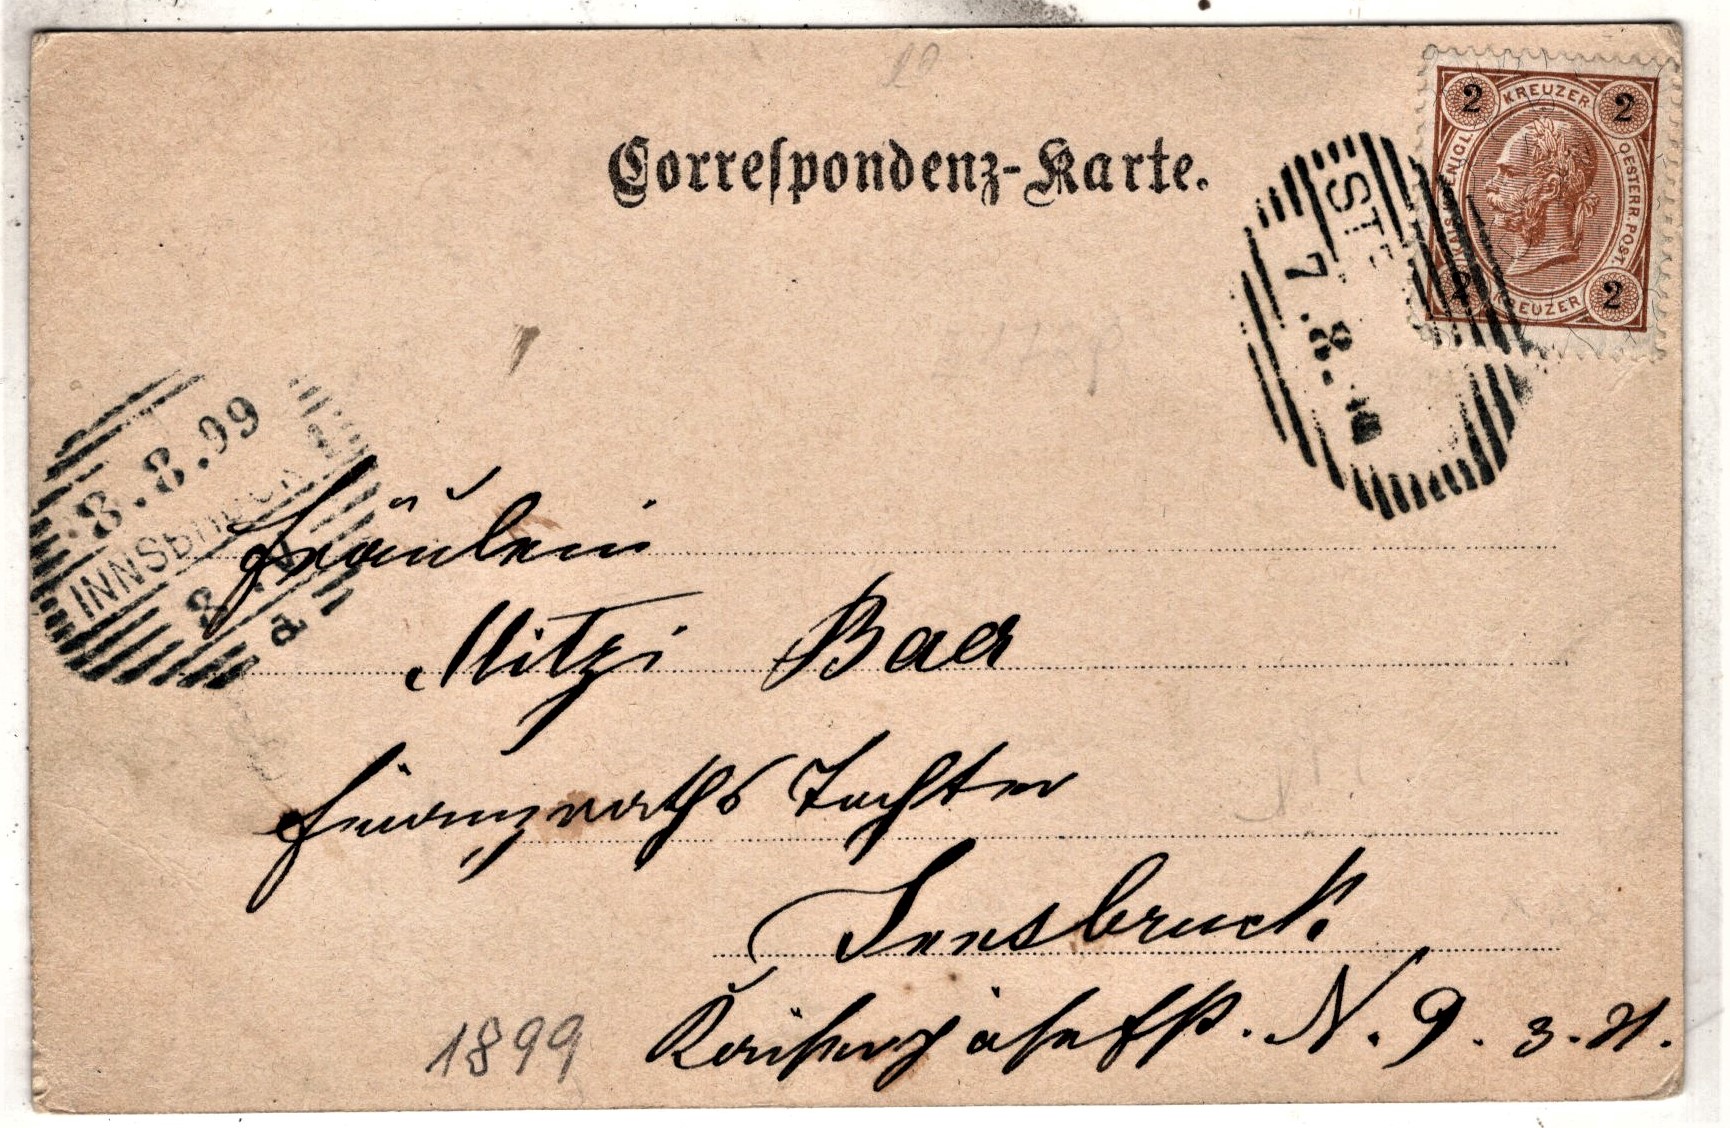 Correspondenz-Karte.
2 KREUZER 2
KAIS. KÖNIGL. OESTERR. POST.
2 KREUZER 2
7.8.
8.8.99
INNSBRUCK 1
8.
a
Fräulein
Mitzi Baer
Finanzraths Tochter
Innsbruck
Kaiserjosefstr. N. 9. 3. St.
1899